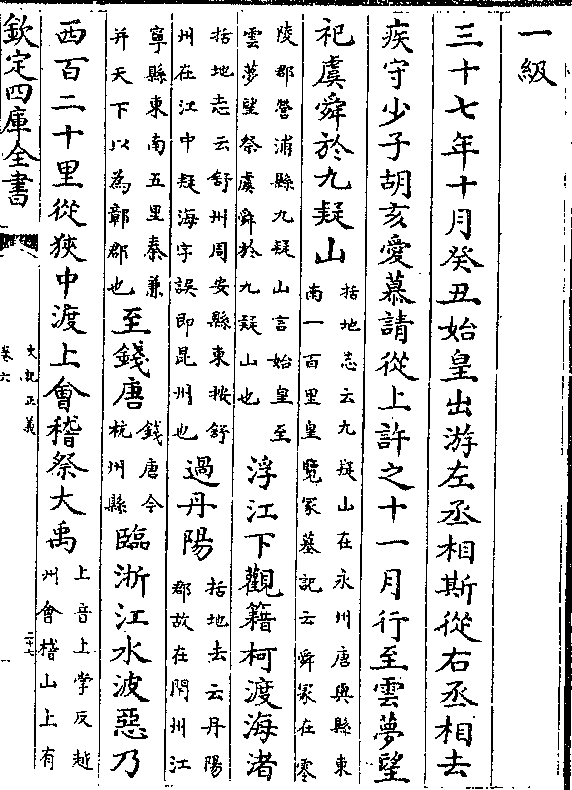 一級
三十七年十月癸丑始皇出游左丞相斯從右丞相去
疾守少子胡亥愛慕請從上許之十一月行至雲夢望
祀虞舜於九疑山括地志云九疑山在永州唐興縣東南一百里皇覽冢墓記云舜冢在零
陵郡營浦縣九疑山言始皇至雲夢望祭虞舜於九疑山也浮江下觀籍柯渡海渚
括地志云舒州周安縣東按舒州在江中疑海字誤即昆州也過丹陽括地去云丹陽郡故在閏州江
寧縣東南五里秦兼并天下以為鄣郡也至錢唐錢唐今杭州縣臨浙江水波惡乃
西百二十里從狹中渡上會稽祭大禹上音上掌反越州會稽山上有
欽定四庫全書
史記正義
卷六